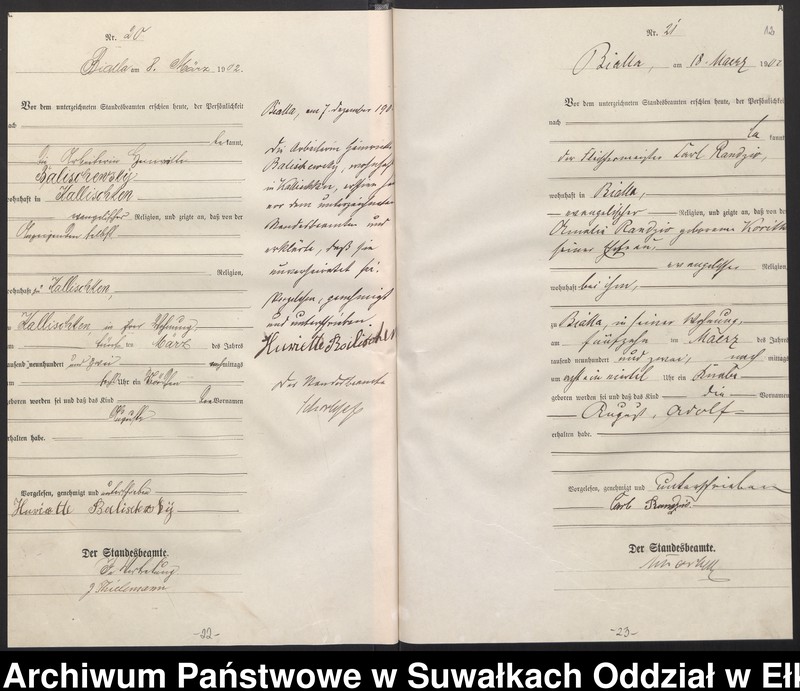 Nr. 20
Bialla am 8. März 1902.
Vor dem unterzeichneten Standesbeamten erschien heute, der Persönlichkeit
nach
bekannt,
die Arbeiterin Henriette
Balischewsky
wohnhaft in Kallischken
evangelischer Religion, und zeigte an, daß von der
Anzeigenden selbst
Religion,
wohnhaft zu Kallischken,
zu Kallischken in ihrer Wohnung
am
ten März des Jahres
tausend neunhundert und zwei mittags
um Uhr ein Mädchen
geboren worden sei und daß das Kind den Vornamen
Auguste
erhalten habe.
Vorgelesen, genehmigt und unterschrieben
Henriette Balischewsky
Der Standesbeamte.
In Vertretung
Thielemann
-22-
Bialla, am 7. Dezember 190
Die Arbeiterin Henriette
Balischewsky, wohnhaft
in Kallischken, erschien
vor dem unterzeichneten
Standesbeamten und
erklärte, daß sie
unverheiratet sei.
Vorgelesen, genehmigt
und unterschrieben
Henriette Balischew
Der Standesbeamte
Nr. 21
12
Bialla, am 18. Maerz 1902
Vor dem unterzeichneten Standesbeamten erschien heute, der Persönlichkeit
nach
bekannt,
der Fleischermeister Carl Randzio,
wohnhaft in Bialla,
evangelischer Religion, und zeigte an, daß von der
Amalie Randzio geborene
seiner Ehefrau,
evangelischer Religion,
wohnhaft bei ihm,
zu Bialla, in seiner Wohnung
am fünfzehn ten Maerz des Jahres
tausend neunhundert und zwei, nach mittags
um Uhr ein Knabe
geboren worden sei und daß das Kind die Vornamen
August, Adolf
erhalten habe.
Vorgelesen, genehmigt und unterschrieben
Carl Randzio
Der Standesbeamte.
-23-
Archiwum Państwowe w Suwałkach Oddział w Eł